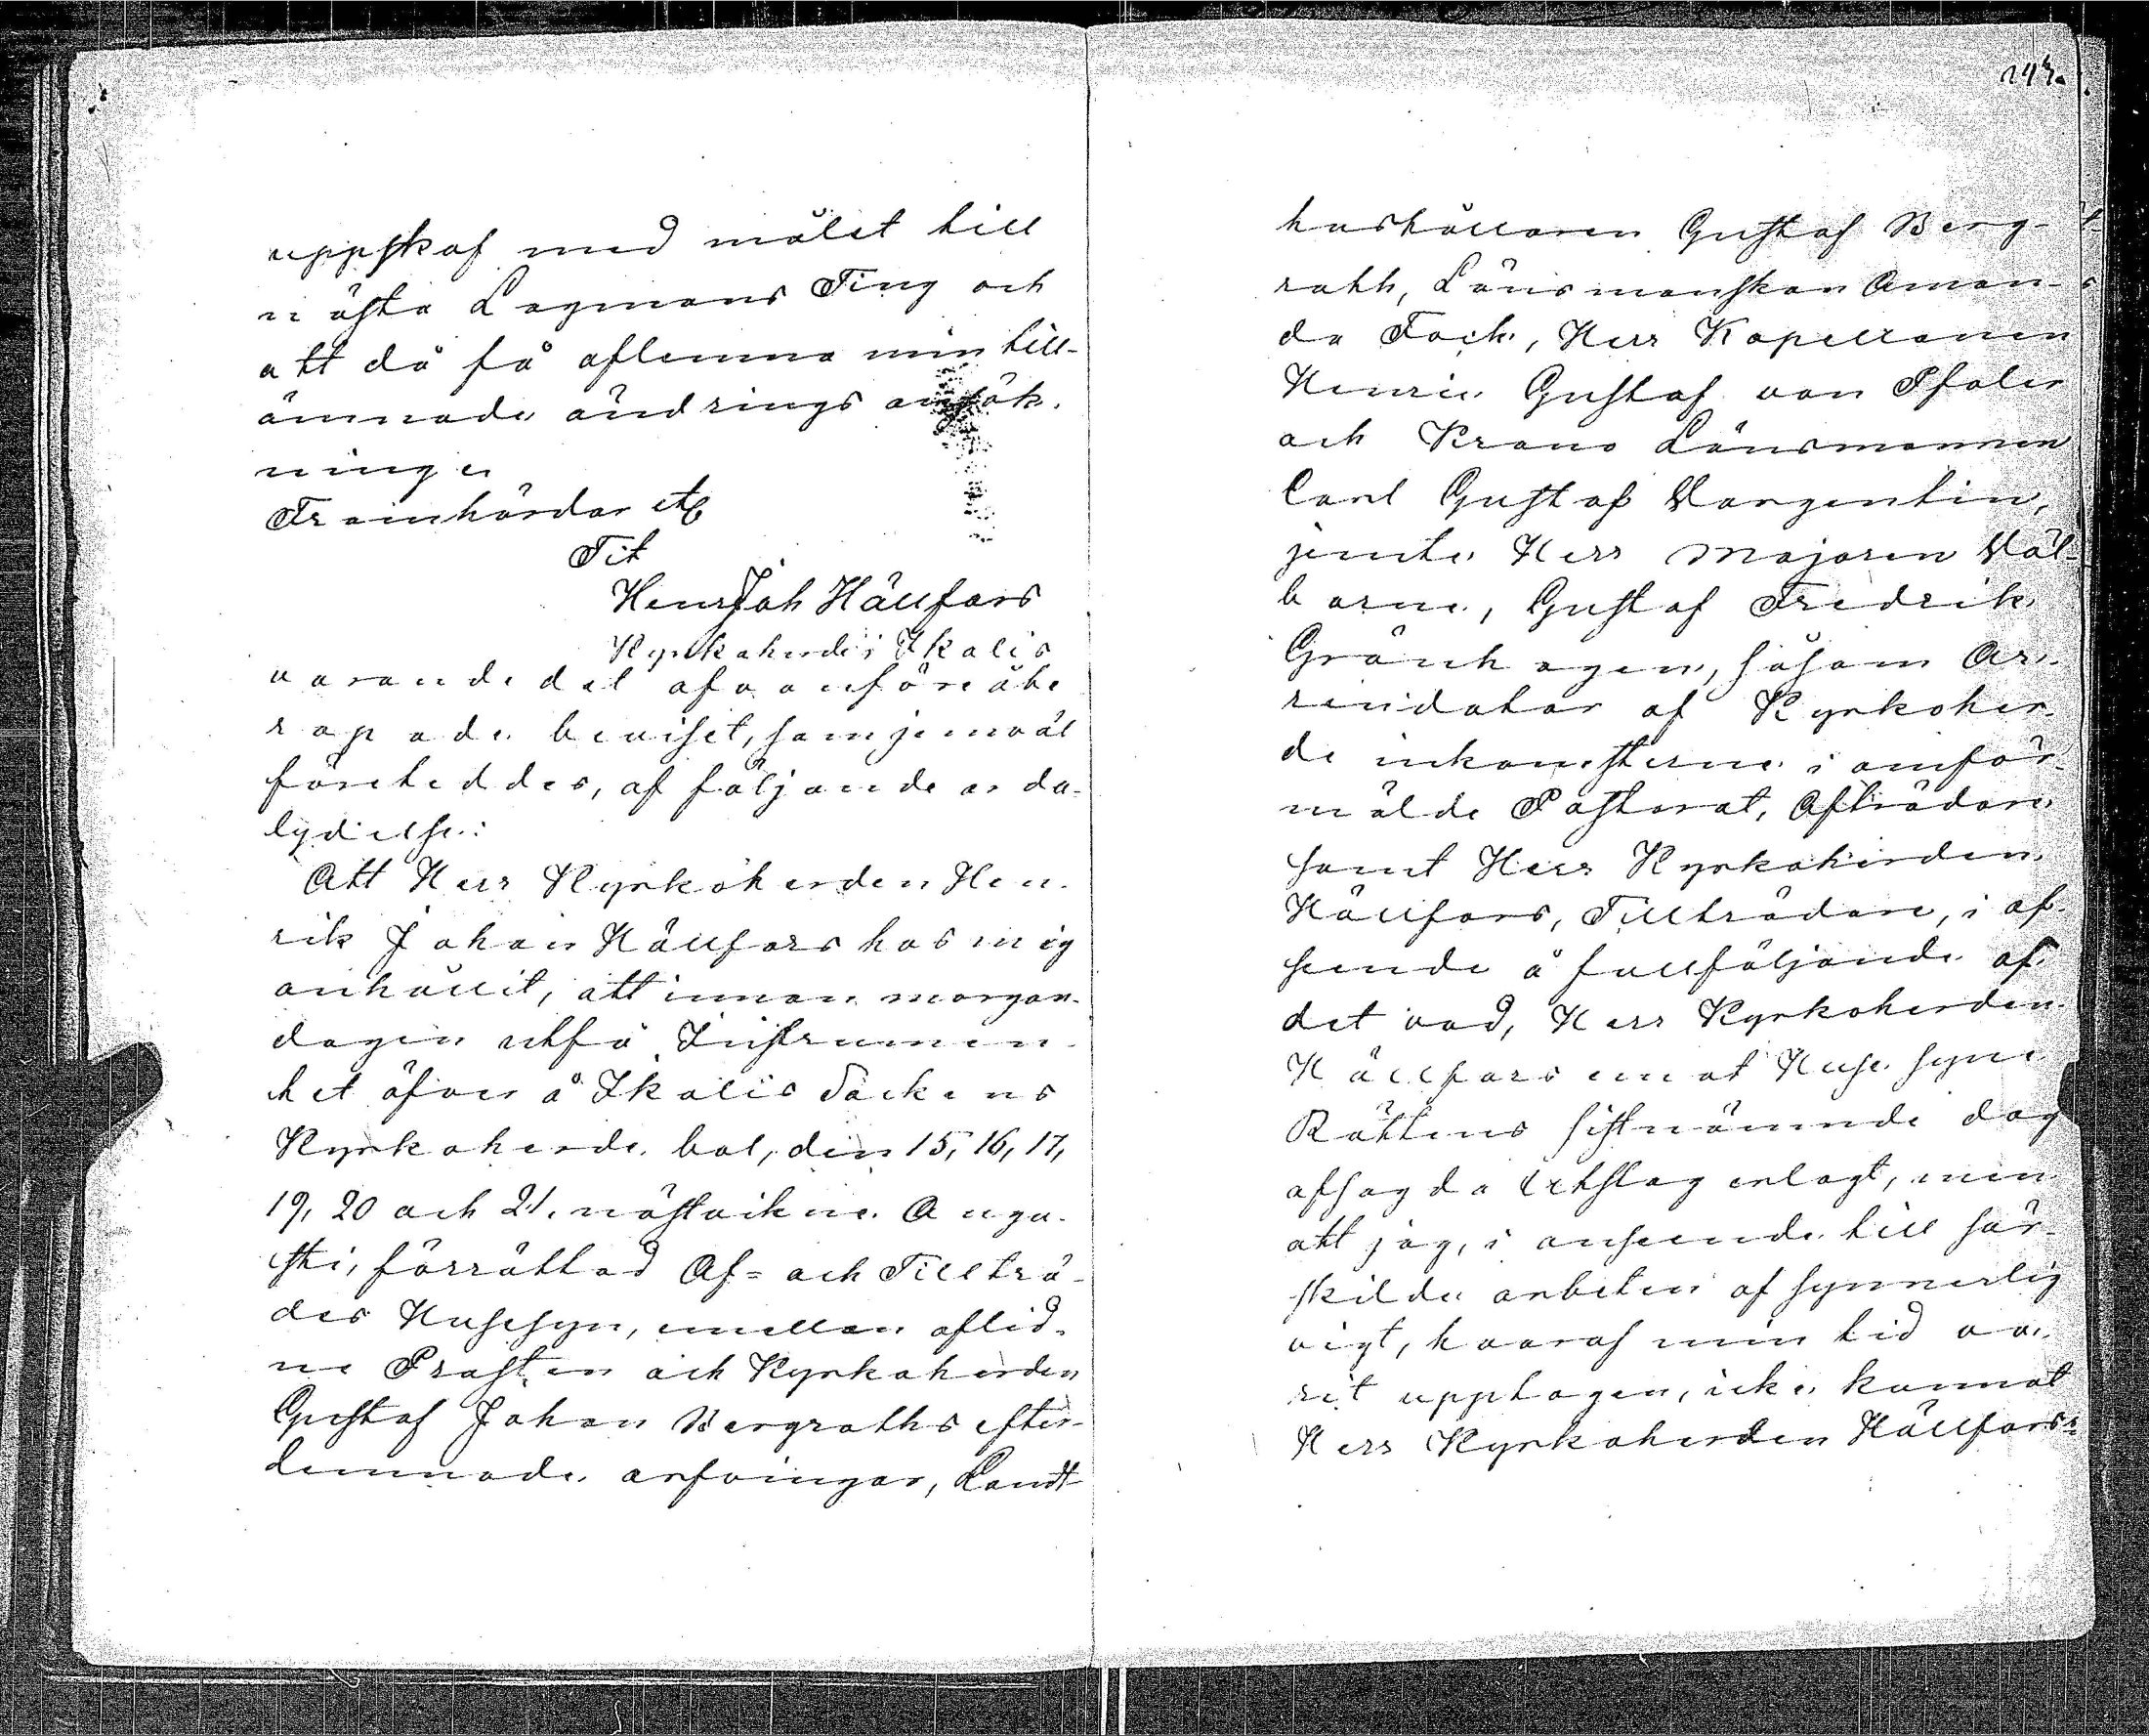 uppskof med målet till
nästa Lagmans Ting och
att då få aflemna min till-
ämnade ändrings ansök-
ning.
Framhärdar etc
Tit
Henr Joh Hällfors
Kyrkoherde i Ikalis
varande det af va anföre åbe
ropade beviset, som jemväl
företeddes, af följande or da-
lydelse:
Att Herr Kyrkoherden Hen-
rik Johan Hällfors hos mig
anhållit, att innan morgon-
dagen utfå Instrumen-
tet öfver å Ikalis Sockens
Kyrkoherde bol, den 15, 16, 17,
19, 20 och 21. nästvikne Augu-
sti, förrättad Af= och Tillträ-
des Husesyn, emellan aflid-
ne Prosten och Kyrkoherden
Gustaf Johan Bergroths efter-
lemnade arfvingar, Landt-
hushållaren Gustaf Berg-
roth, Länsmanskan Aman-
da Fock, Herr Kapellanen
Henric Gustaf von Pfaler
och Krono Länsmannen
Carl Gustaf Vargentin,
jemte Herr Majoren Väl-
borne, Gustaf Fredrik
Grönhagen, såsom Ar-
rendator af Kyrkoher-
de inkomsterne i omför-
mälde Pastorat, Afträdare
samt Herr Kyrkoherden
Hällfors, Tillträdare, i af-
seende å fullföljande af
det vad, Herr Kyrkoherden
Hällfors emot Huse syne
Rättens sistnämnde dag
afsagda Utslag erlagt, men
att jag, i anseende till sär-
skilde arbeten af synnerlig
vigt, hvaraf min tid va-
rit upptagen, icke kunnat
Herr Kyrkoherden Hällfors: